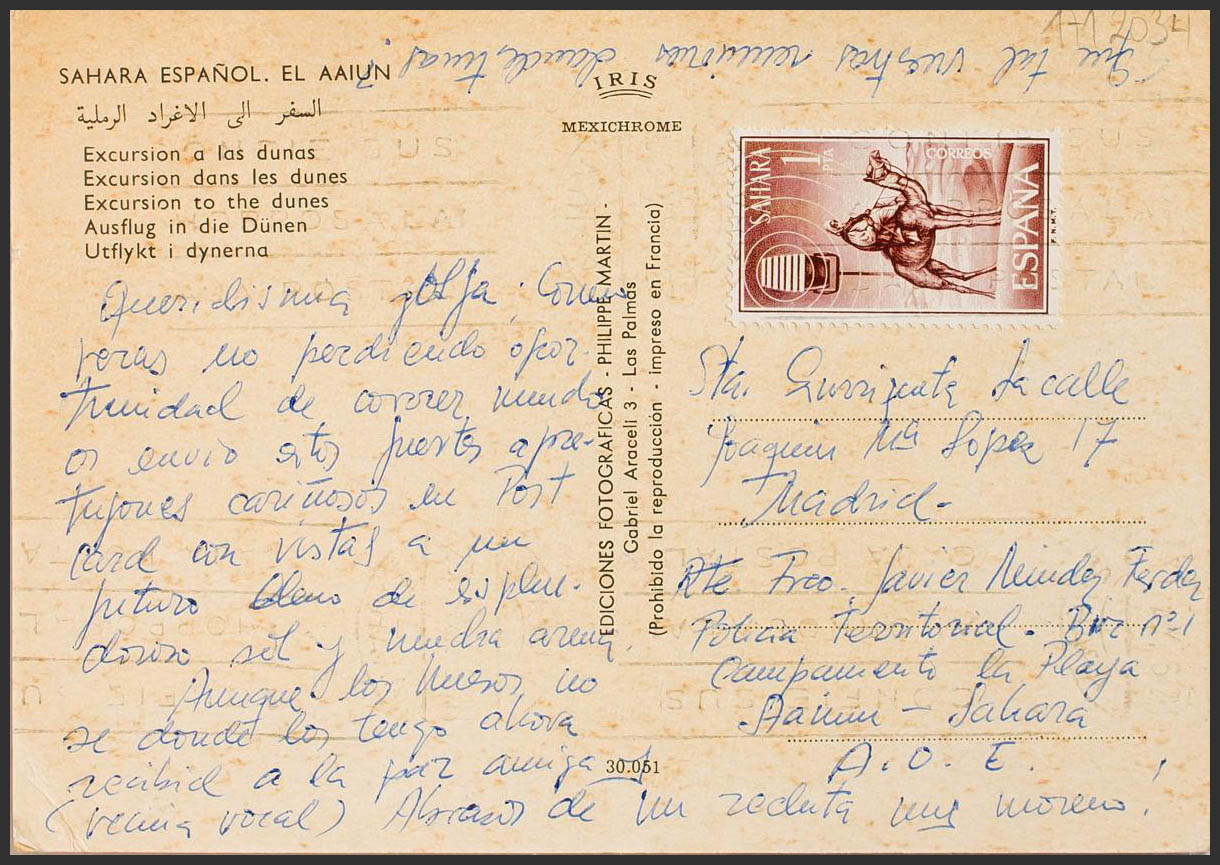 171 2034
Que tal vuestras reuniones clandestinas?
SAHARA ESPAÑOL. EL AAIUN
السفر الى الاغراد الرملية
Excursion a las dunas
Excursion dans les dunes
Excursion to the dunes
Ausflug in die Dünen
Utflykt i dynerna
IRIS
MEXICHROME
EDICIONES FOTOGRAFICAS - PHILIPPE MARTIN -
Gabriel Araceli 3 - Las Palmas
(Prohibido la reproducción - impreso en Francia)
SAHARA 1 PTA
CORREOS
ESPAÑA
F.N.M.T.
Queridisima
veras no perdiendo opor-
tunidad de correr mundo
os envio estos fuertes apre-
tujones cariñosos en Post
card con vistas a un
futuro lleno de esplen-
doroso sol y mucha arena.
Aunque los huesos no
se donde los tengo ahora
recibid a la par amiga
(vecina vocal) Abrazos de un recluta muy moreno.
Sta. Lacalle
Joaquin Mª Lopez 17
Madrid-
Rte Fco. Javier Mendez Fdez
Policia Territorial. Bir nº1
Campamento la Playa
Aaiun - Sahara
A.O.E.
30.051